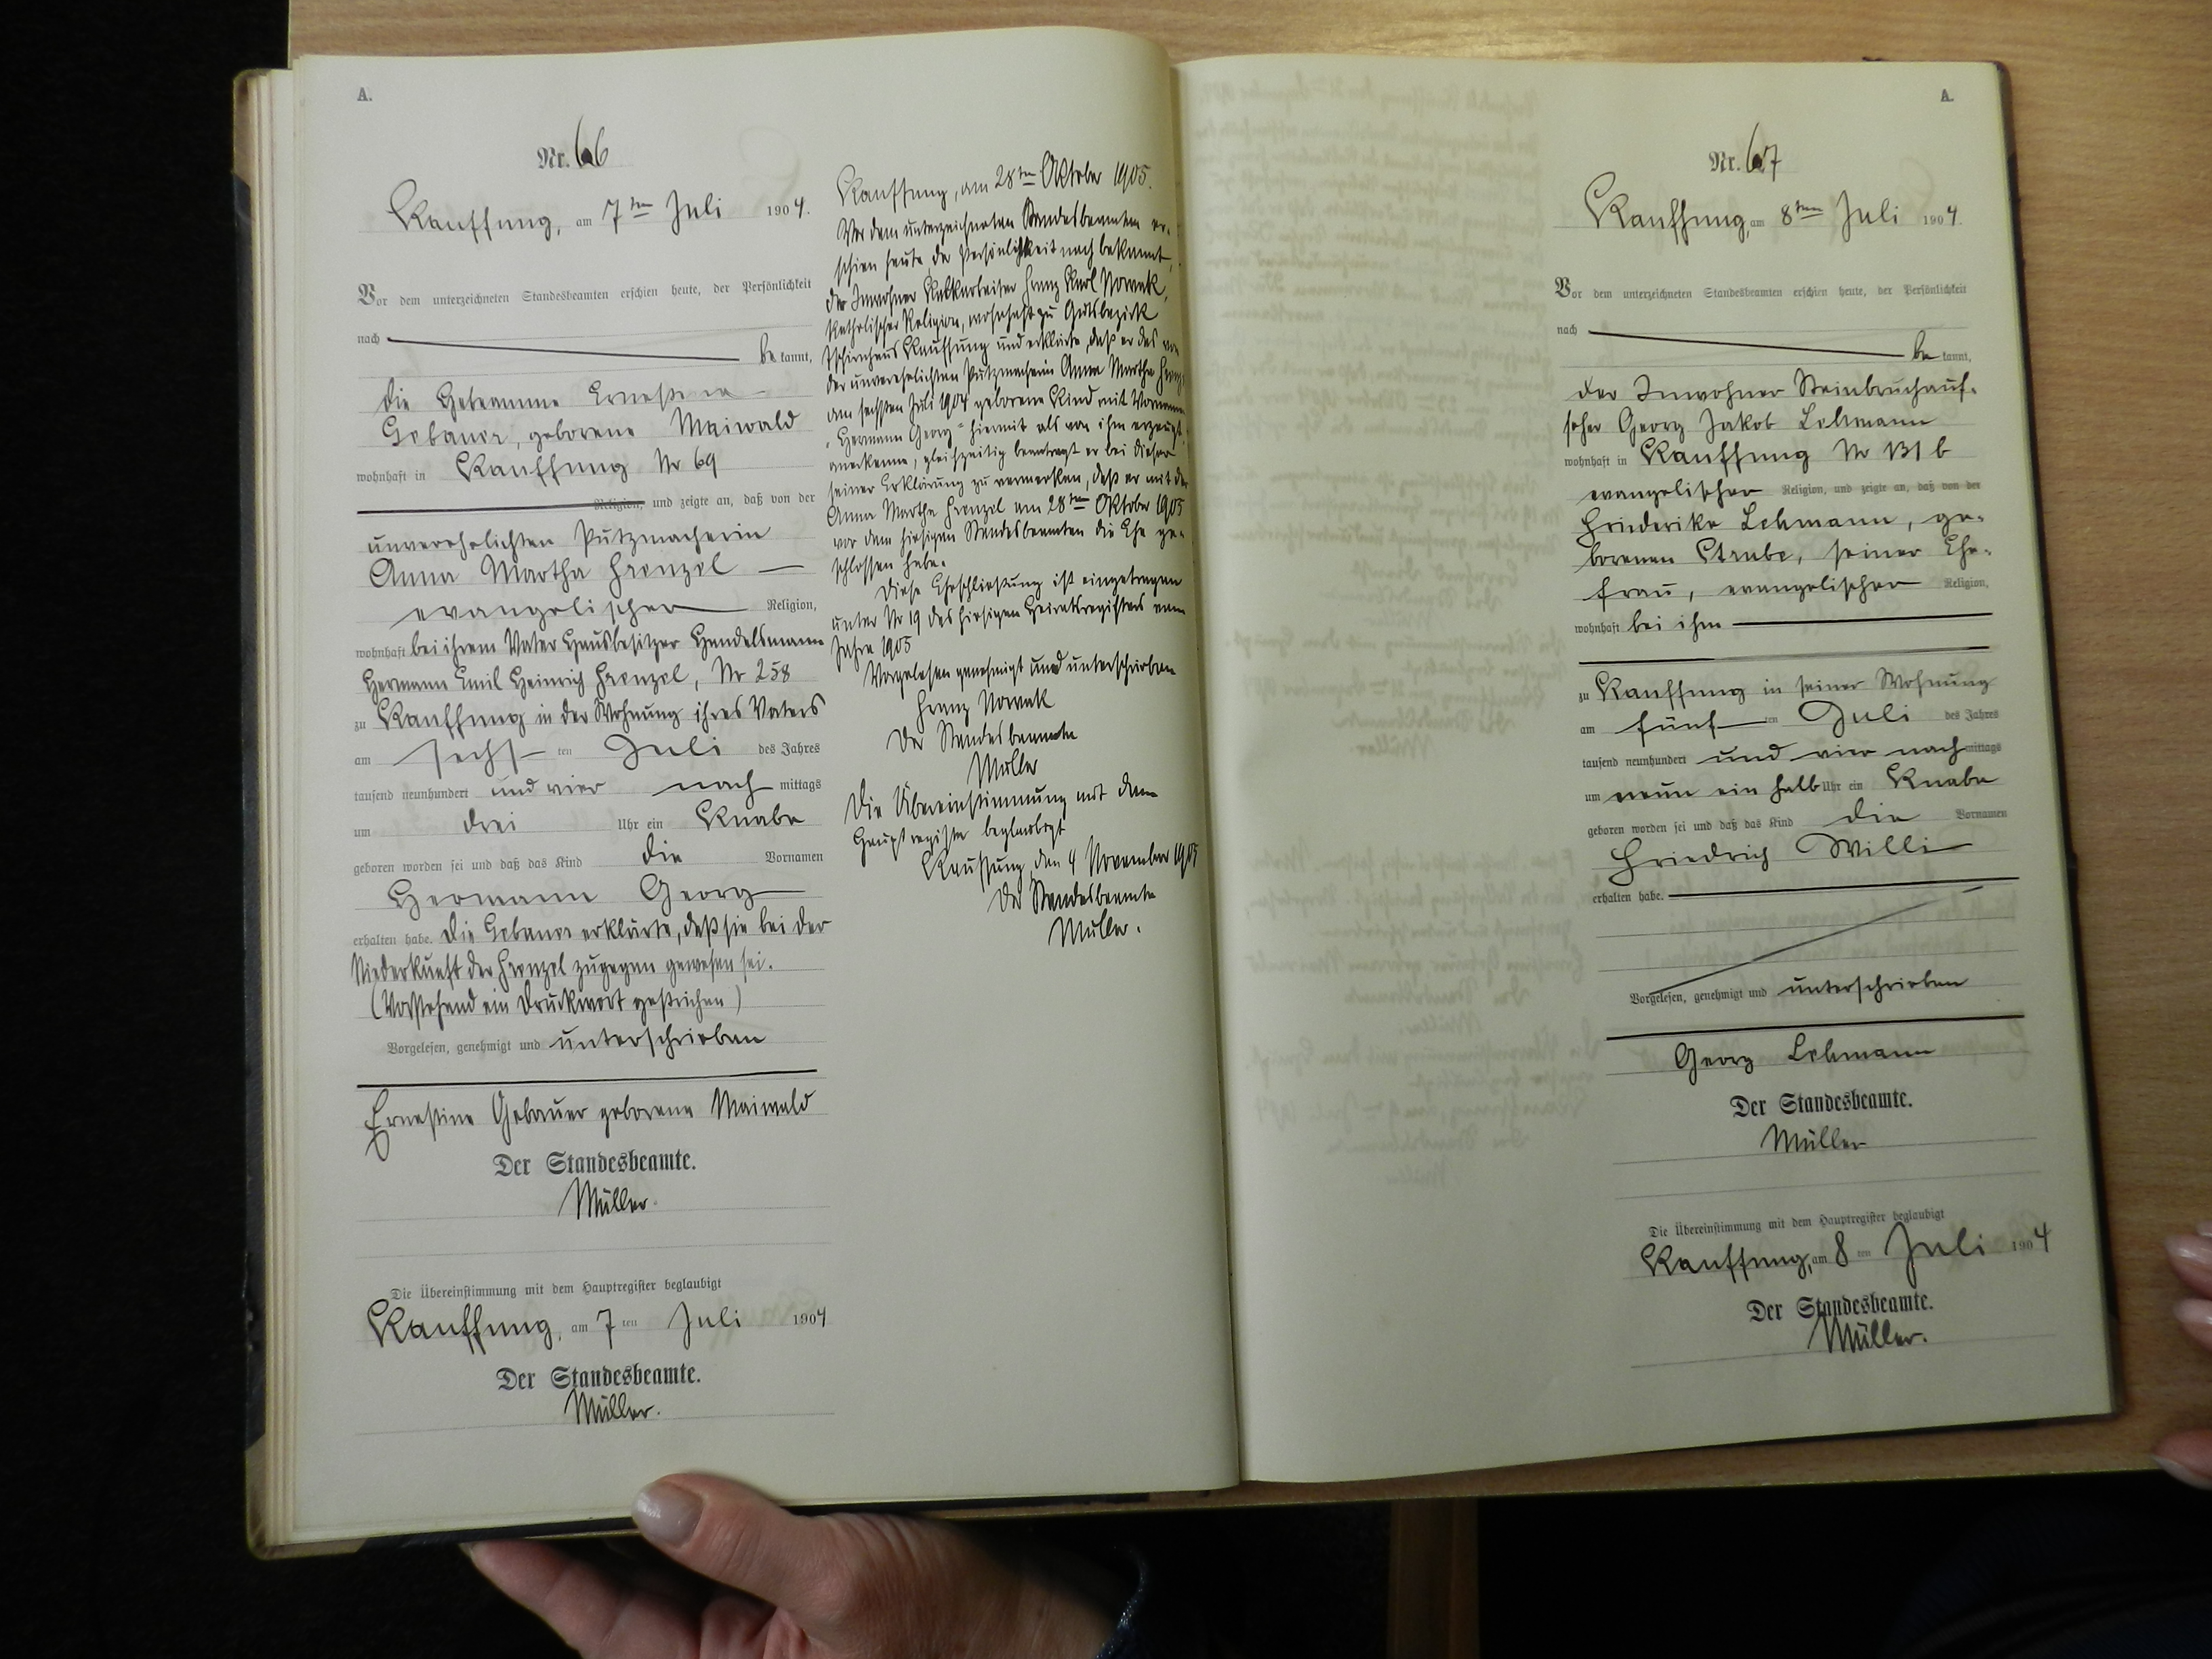 A.
Nr. 66
Kauffung, am 7ten Juli 1904.
Vor dem unterzeichneten Standesbeamten erschien heute, der Persönlichkeit
nach be kannt,
die Hebamme Ernestine
Gebauer, geborene Maiwald
wohnhaft in Kauffung Nr 69
Religion, und zeigte an, daß von der
unverehelichten Putzmacherin
Anna Martha Frenzel
evangelischer Religion,
wohnhaft bei ihrem Vater Hausbesitzer Handelsmann
Hermann Emil Heinrich Frenzel, Nr 258
zu Kauffung in der Wohnung ihres Vaters
am sechs ten Juli des Jahres
tausend neunhundert und vier nach mittags
um drei Uhr ein Knabe
geboren worden sei und daß das Kind die Vornamen
Hermann Georg
erhalten habe. Die Gebauer erklärte, daß sie bei der
Niederkunft der Frenzel zugegen gewesen sei.
(Vorstehend ein Druckwort gestrichen)
Vorgelesen, genehmigt und unterschrieben
Ernestine Gebauer geborene Maiwald
Der Standesbeamte.
Müller.
Die Übereinstimmung mit dem Hauptregister beglaubigt
Kauffung, am 7 ten Juli 1904
Der Standesbeamte.
Müller.
Kauffung, am 28ten Oktober 1905.
Vor dem unterzeichneten Standesbeamten er-
schien heute, der Persönlichkeit nach bekannt,
der Inwohner Kalkarbeiter Franz Karl Nowak,
katholischer Religion, wohnhaft zu Gutsbezirk
Tschirnhaus Kauffung und erklärte, daß er das von
der unverehelichten Putzmacherin Anna Martha Frenzel
am sechsten Juli 1904 geborene Kind mit Vornamen
"Hermann Georg" hiermit als von ihm erzeugt
anerkenne, gleichzeitig beantragt er bei dieser
seiner Erklärung zu vermerken, daß er mit der
Anna Martha Frenzel am 28ten Oktober 1905
vor dem hiesigen Standesbeamten die Ehe ge-
schlossen habe.
Diese Eheschließung ist eingetragen
unter Nr 19 des hiesigen Heiratsregisters vom
Jahre 1905
Vorgelesen genehmigt und unterschrieben
Franz Nowak
Der Standesbeamte
Müller
Die Übereinstimmung mit dem
Hauptregister beglaubigt
Kauffung, den 4 November 1905
Der Standesbeamte
Müller.
A.
Nr. 67
Kauffung, am 8ten Juli 1904.
Vor dem unterzeichneten Standesbeamten erschien heute, der Persönlichkeit
nach be kannt,
der Inwohner Steinbruchauf-
seher Georg Jakob Lehmann
wohnhaft in Kauffung Nr 131 b
evangelischer Religion, und zeigte an, daß von der
Friederike Lehmann, ge-
borenen Strube, seiner Ehe-
frau, evangelischer Religion,
wohnhaft bei ihm
zu Kauffung in seiner Wohnung
am fünf ten Juli des Jahres
tausend neunhundert und vier nach mittags
um neun ein halb Uhr ein Knabe
geboren worden sei und daß das Kind die Vornamen
Friedrich Willi
erhalten habe.
Vorgelesen, genehmigt und unterschrieben
Georg Lehmann
Der Standesbeamte.
Müller
Die Übereinstimmung mit dem Hauptregister beglaubigt
Kauffung, am 8 ten Juli 1904
Der Standesbeamte.
Müller.